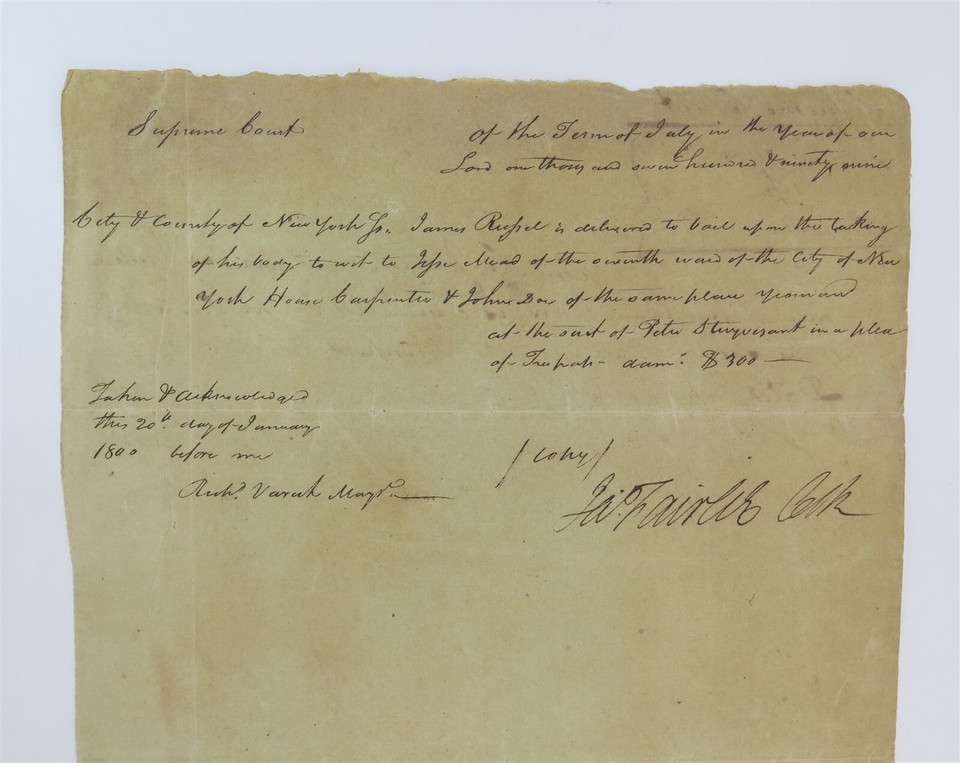 Supreme Court
Of the Term of July in the Year of our
Lord one thous and seven hundred & ninety nine
City & County of New York Ss. James Russel is delivered to bail upon the taking
of his body to wit to Jesse Mead of the seventh ward of the City of New
York House Carpenter & John Doe of the same place Yeoman
at the suit of Peter Stuyvesant in a plea
of Trespass - dam.s $300 —
Taken & acknowledged
this 20th day of January
1800 before me
Richd. Varick Mayor
(copy)
Jas. Fairlie Clk